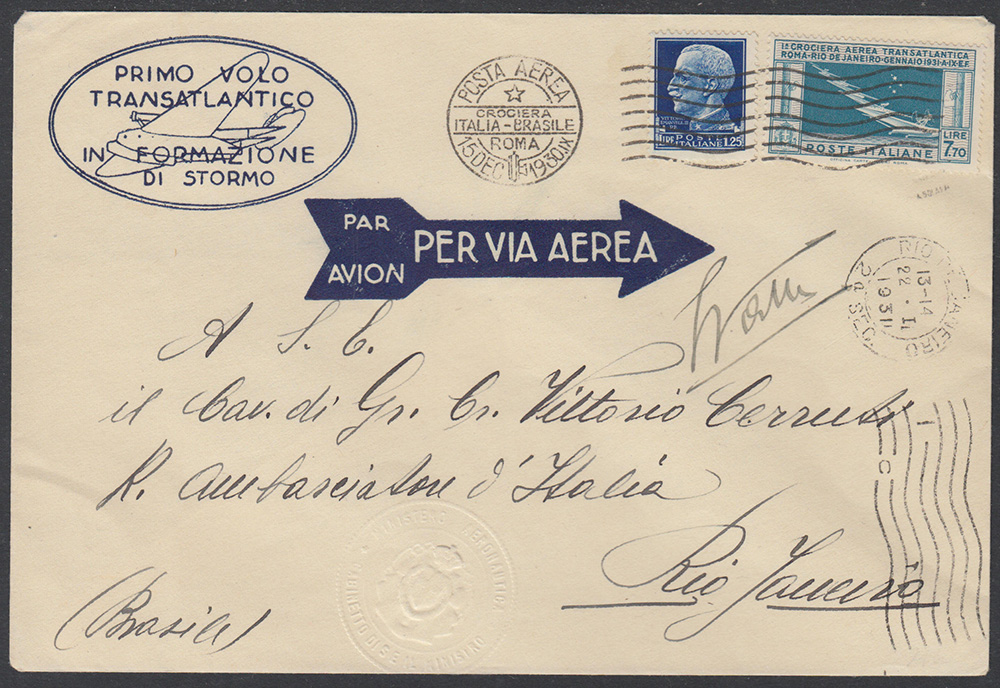 PRIMO VOLO
TRANSATLANTICO
IN FORMAZIONE
DI STORMO
POSTA AEREA
CROCIERA
ITALIA-BRASILE
ROMA
15 DEC 1930 IX
VITTORIO
LIRE
ITALIANE
1.25
1ª CROCIERA AEREA TRANSATLANTICA
ROMA·RIO DE JANEIRO·GENNAIO 1931·A·IX·E·F·
LIRE
7.70
POSTE ITALIANE
PAR
AVION
PER VIA AEREA
RIO DE JANEIRO
13-14
22·I
1931
A S. E.
il Cav. di Gr. Cr. Vittorio Cerruti
R. Ambasciatore d'Italia
Rio Janeiro
(Brasile)
MINISTERO AERONAUTICA
GABINETTO DI S.E. IL MINISTRO